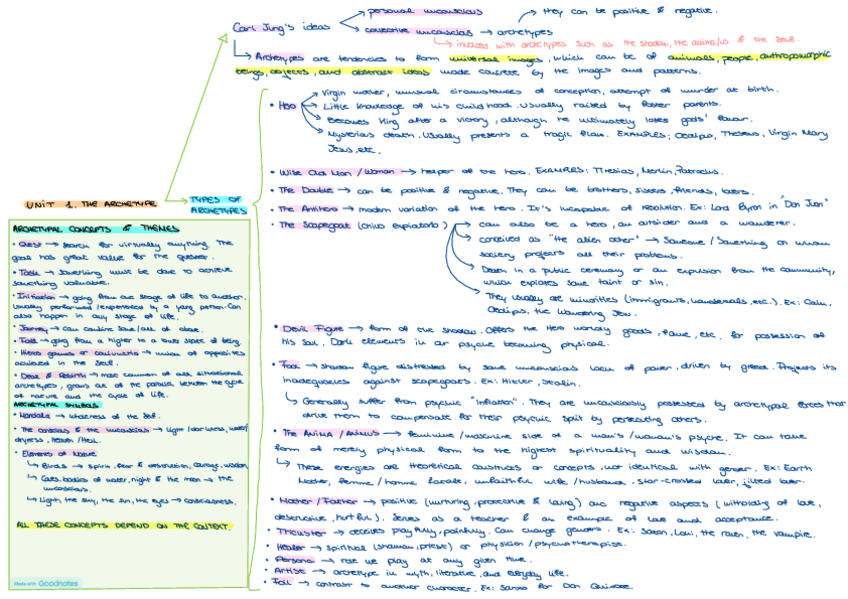 personal unconscious
they can be positive & negative.
Carl Jung's ideas
collective unconscious → archetypes
involved with archetypes such as the shadow, the anima/us & the Self.
Archetypes are tendencies to form universal images, which can be of animals, people, anthropomorphic
beings, objects, and abstract ideas made concrete by the images and patterns.
UNIT 1. THE ARCHETYPE
TYPES OF
ARCHETYPES
• Hero
Virgin mother, unusual circumstances of conception, attempt of murder at birth.
Little knowledge of his childhood. Usually raised by foster parents.
Becomes King after a victory, although he ultimately loses gods' favour.
Mysterious death. Usually presents a tragic flaw. EXAMPLES: Oedipus, Theseus, Virgin Mary
Jesus, etc.
• Wise Old Man / Woman → helper of the hero. EXAMPLES: Tiresias, Merlin, Patroclus.
• The Double → can be positive & negative. They can be brothers, sisters, friends, lovers.
• The Antihero → modern variation of the hero. It's incapable of resolution. Ex: Lord Byron in "Don Juan"
• The Scapegoat (chivo expiatorio)
can also be a hero, an outsider and a wanderer.
conceived as "the alien other" → Someone / Something on whom
society projects all their problems.
Death in a public ceremony or an expulsion from the community,
which expiates some taint or sin.
They usually are minorities (immigrants, etc.). Ex: Cain,
Oedipus, the Wandering Jew.
• Devil Figure → form of the shadow. Offers the Hero worldly goods, fame, etc, for possession of
his soul. Dark elements in our psyche becoming physical.
→ shadow figure distressed by some unconscious lack of power, driven by greed. Projects its
inadequacies against scapegoats. Ex: Hitler, Stalin.
Generally suffer from psychic "inflation". They are unconsciously possessed by archetypal forces that
drive them to compensate for their psychic split by persecuting others.
• The ANIMA / ANIMUS → feminine / masculine side of a man's / woman's psyche. It can take
form of merely physical form to the highest spirituality and wisdom.
These energies are theoretical constructs or concepts, not identical with gender. Ex: Earth
Mother, femme / homme fatale, unfaithful wife / husband, star-crossed lover, jilted lover.
• Mother / Father → positive (nurturing, protective & loving) and negative aspects (witholding of love,
destructive, hurtful). Serves as a teacher & an example of love and acceptance.
• Trickster → deceives playfully, painfully. Can change genders. Ex: Satan, Loki, the raven, the vampire.
• Healer → spiritual (shaman, priest) or physician / psychotherapist.
• Persona → role we play at any given time.
• Artist → archetype in myth, literature, and everyday life.
• Foil → contrast to another character. Ex: Sancho for Don Quixote.
ARCHETYPAL CONCEPTS & THEMES
• Quest → search for virtually anything. The
goal has great value for the quester.
• Task → something must be done to achieve
something valuable.
• Initiation → going from one stage of life to another.
Usually performed / experienced by a young person. Can
also happen in any stage of life.
• Journey → can combine some/all of above.
• Fall → going from a higher to a lower state of being.
• Hieros gamos or coniunctio → union of opposites
achieved in the Self.
• Death & Rebirth → most common of all situational
archetypes, grows out of the parallel between the cycle
of nature and the cycle of life.
ARCHETYPAL SYMBOLS
• Mandala → wholeness of the Self.
• The conscious & the unconscious → light / darkness, water/
dryness, heaven / Hell.
• Elements of Nature
Birds → spirit, fear & destruction, courage, wisdom
Caves, bodies of water, night & the moon → the
unconscious.
Light, the sky, the sun, the eyes → consciousness.
ALL THESE CONCEPTS DEPEND ON THE CONTEXT.
Made with Goodnotes